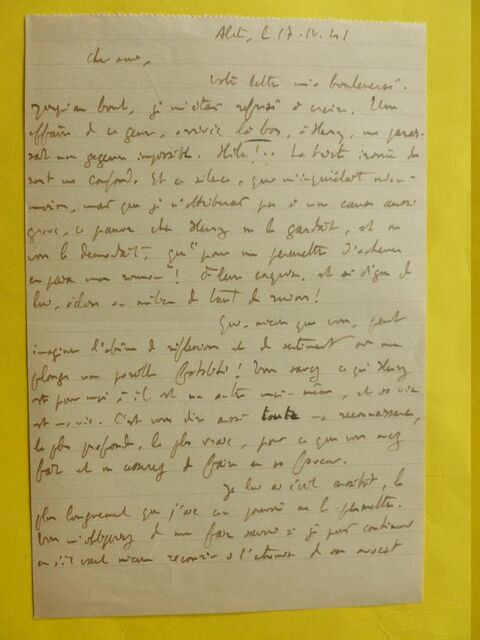 Alet, le 17. IV. 41
Cher ami,
Votre lettre m'a bouleversé.
Jusqu'au bout, je m'étais refusé à croire. Une
affaire de ce genre, arrivée là-bas, à Henry, me parais-
sait une gageure impossible. Hélas!.. La triste ironie du
sort me confond. Et ce silence, qui m'inquiétait
moins, mais que je n'attribuais pas à une cause aussi
grave, ce pauvre cher Henry me le gardait, et
vous le demandait, "pour me permettre d'achever
en paix mon roman"! et si digne de
lui, au milieu de tant de ruines!
Qui, mieux que vous, peut
imaginer l'abîme de réflexions et de sentiments où me
plonge une pareille fatalité! Vous savez ce que Henry
est pour moi: il est un autre moi-même, et sa vie
est ma vie. C'est vous dire aussi toute ma reconnaissance,
la plus profonde, la plus vraie, pour ce que vous avez
fait et en sa faveur.
Je lui ai écrit aussitôt, le
plus longuement que j'aie cru pouvoir me le permettre.
Vous m'obligerez de me faire savoir si je puis continuer
ou s'il vaut mieux recourir à l'adresse de son avocat